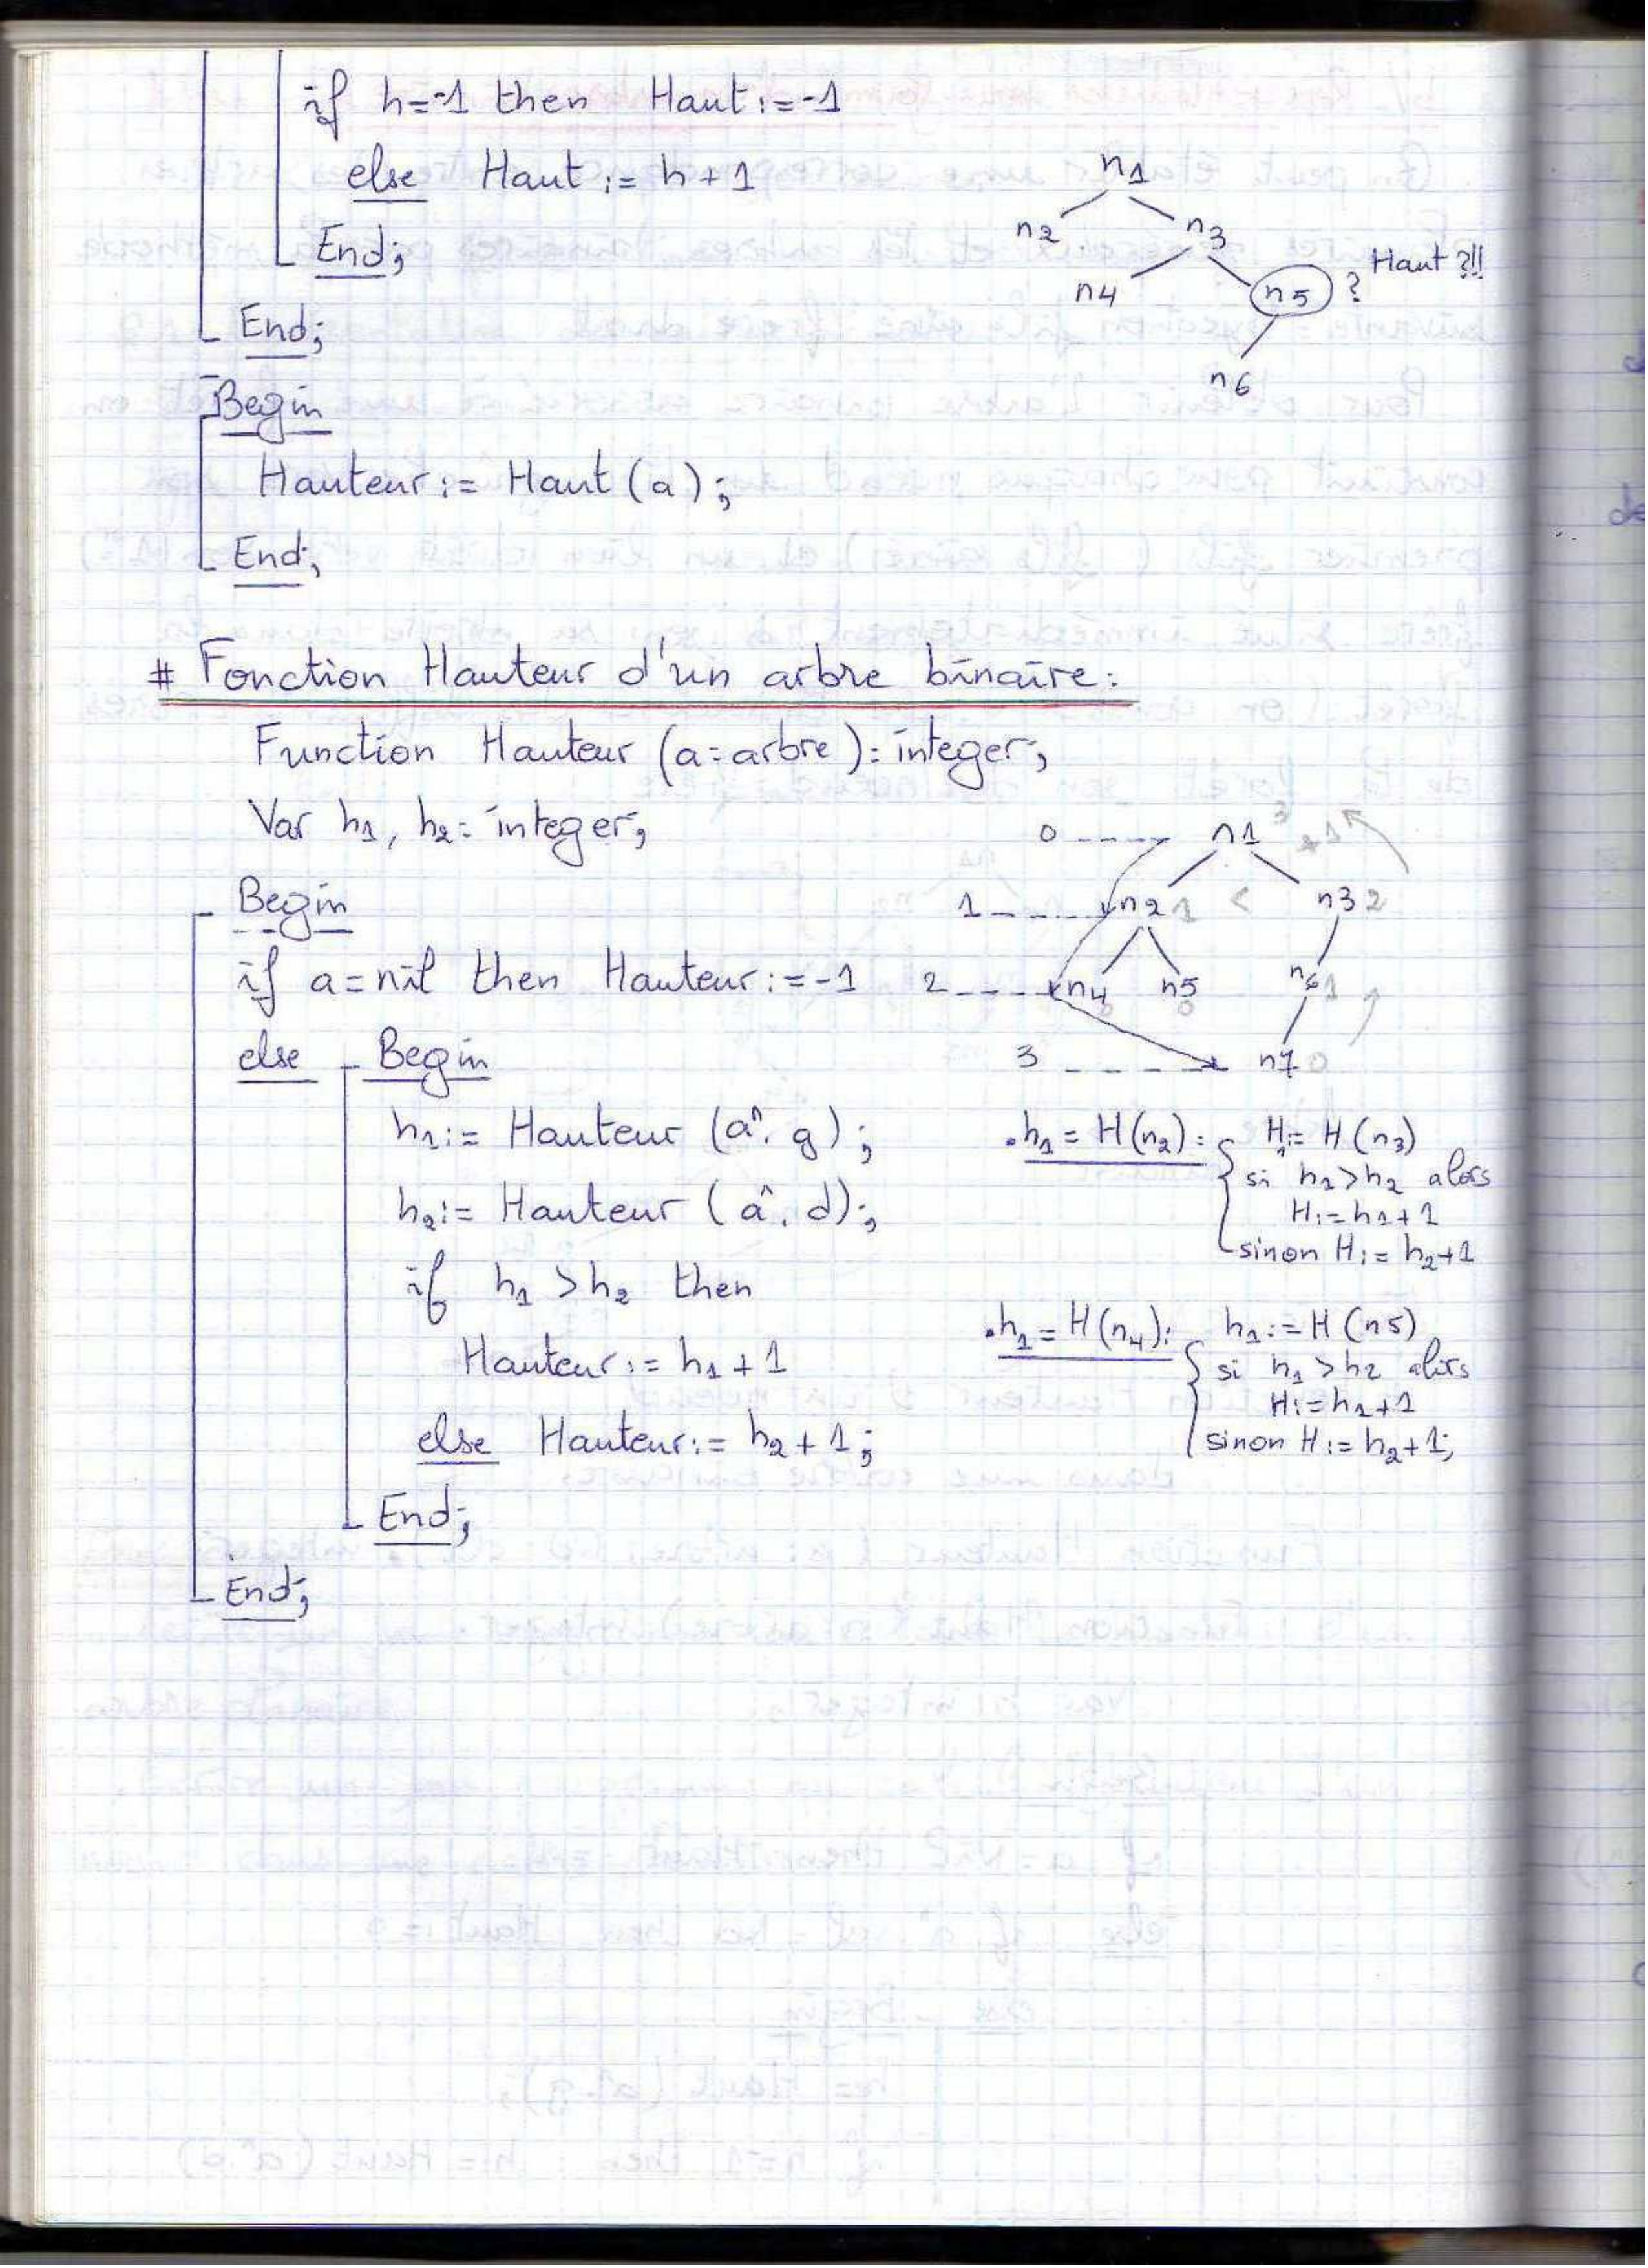 if h=-1 then Haut:=-1
else Haut := h+1
End;
End;
Begin
Hauteur := Haut (a);
End;
n1
n2 n3
n4 n5 ? Haut ?!!
n6
# Fonction Hauteur d'un arbre binaire:
Function Hauteur (a: arbre): integer;
Var h1, h2: integer;
Begin
if a = nil then Hauteur := -1
else Begin
h1 := Hauteur (a^. g);
h2 := Hauteur (a^. d);
if h1 > h2 then
Hauteur := h1 + 1
else Hauteur := h2 + 1;
End;
End;
0 ---- n1 3 +1
1 ---- n2 1 < n3 2
2 ---- n4 0 n5 0 n6 1
3 ---- n7 0
.h1 = H(n2): H:= H(n3)
si h1>h2 alors
H:=h1+1
sinon H:= h2+1
.h1 = H(n4): h1:= H(n5)
si h1 > h2 alors
H:=h1+1
sinon H:= h2+1;